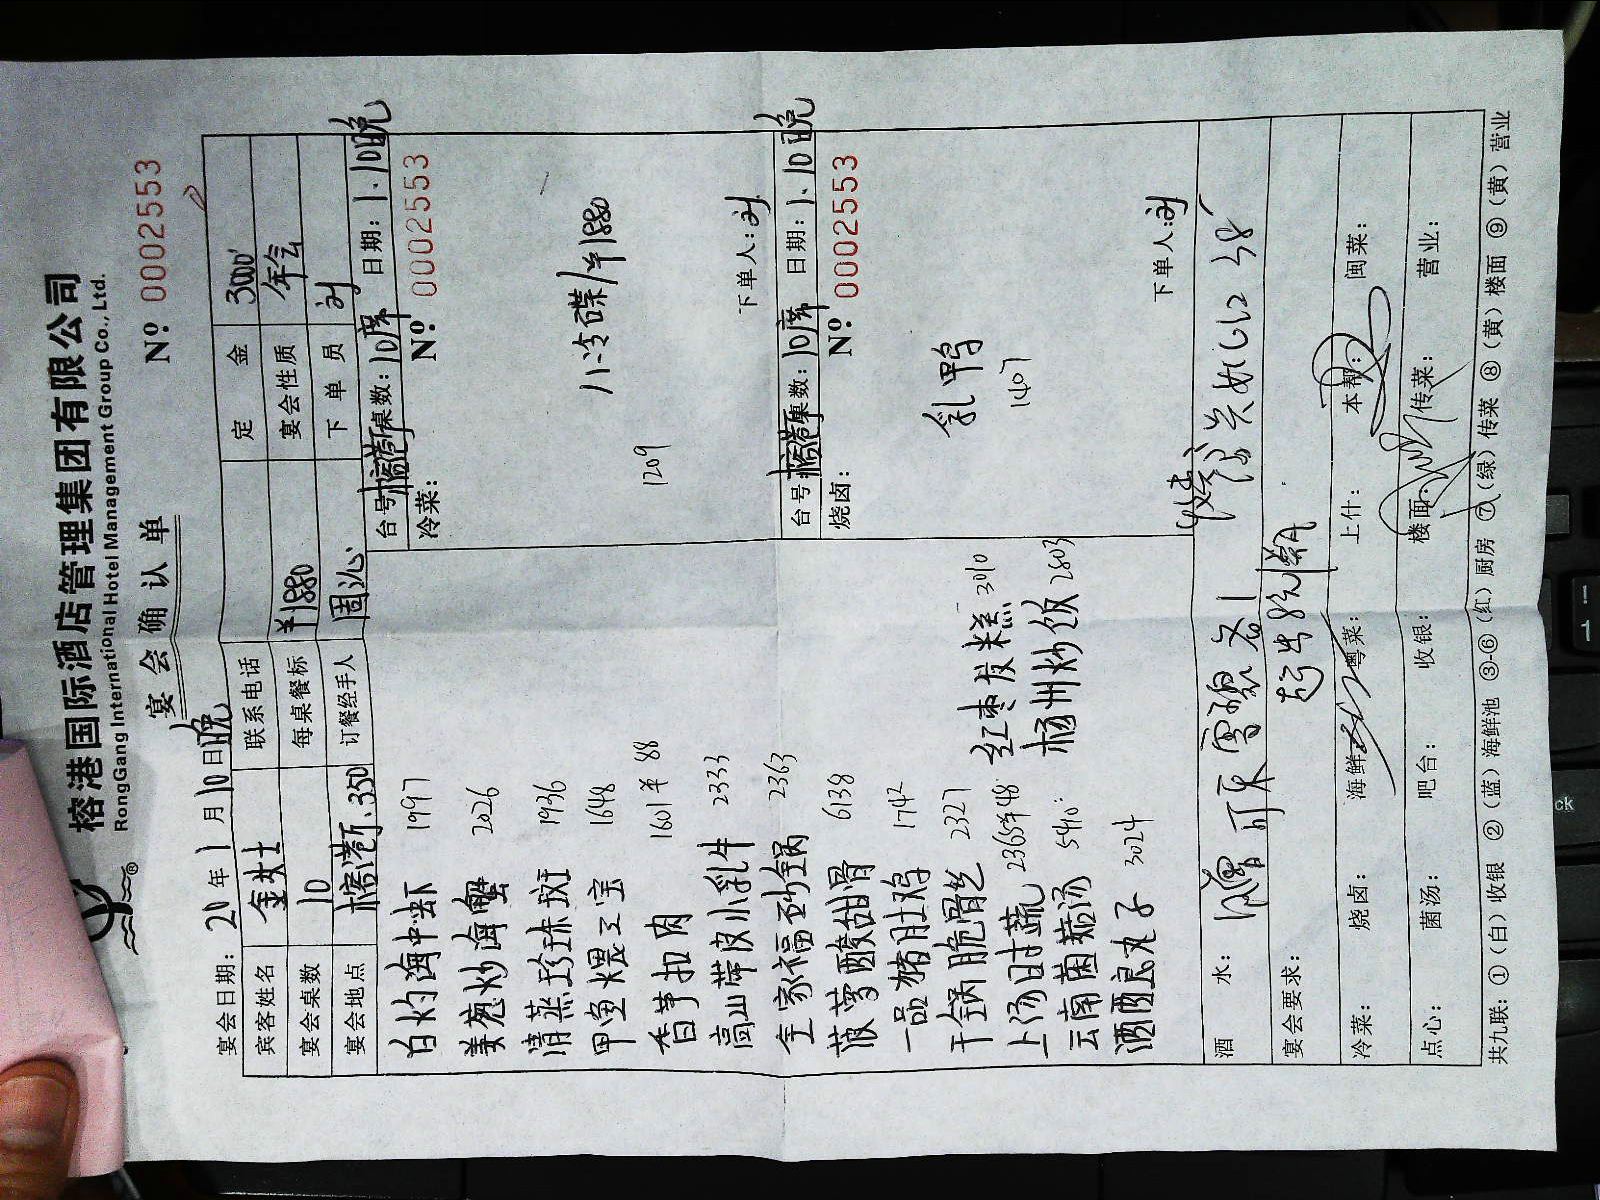 榕港国际酒店管理集团有限公司
RongGang International Hotel Management Group Co., Ltd.
®
宴会确认单
№ 0002553
宴会日期: 20 年 1 月 10 日晚
宾客姓名 金女士 联系电话 定金 3000
宴会桌数 10 每桌餐标 ¥1880 宴会性质 年会
宴会地点 榕港厅.350 订餐经手人 周沁 下单员 刘
白灼海中虾 1997
姜葱炒海蟹 2026
清蒸珍珠斑 1936
甲鱼煨三宝 1648
香芋扣肉 1601 半 88
高山带皮小乳牛 2333
全家福砂锅 2363
菠萝酸甜骨 6138
一品猪肚鸡 1742
干锅脆骨丝 2327
上汤时蔬 2365半48
云南菌菇汤 5410
酒酿丸子 3024
红枣发糕 3010
杨州炒饭 2803
台号 榕港厅 桌数: 10席 日期: 1.10晚
冷菜: № 0002553
八冷碟/半1880
1209
下单人: 刘
台号 榕港厅 桌数: 10席 日期: 1.10晚
烧卤: № 0002553
乳鸭
1407
下单人: 刘
酒水:
宴会要求:
冷菜: 烧卤: 海鲜 粤菜: 上什: 本帮: 闽菜:
点心: 菌汤: 吧台: 收银: 楼面: 传菜: 营业:
共九联: ①(白)收银 ②(蓝)海鲜池 ③-⑥(红)厨房 ⑦(绿)传菜 ⑧(黄)楼面 ⑨(黄)营业